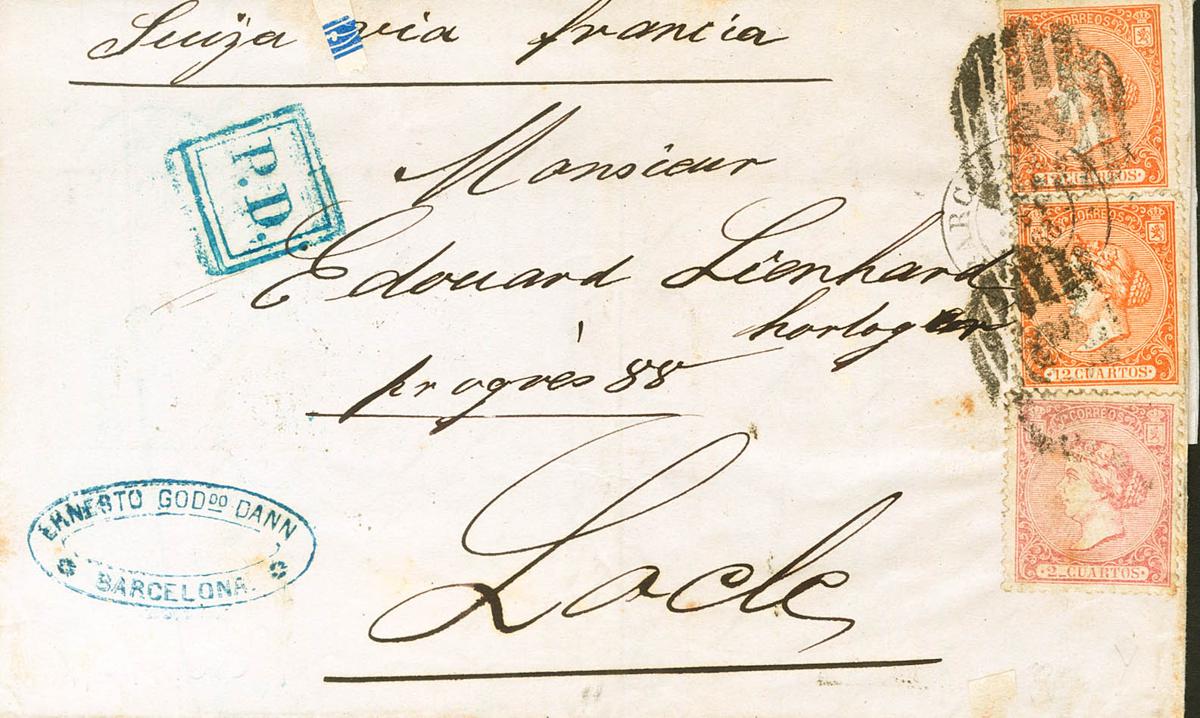 Suiza via francia
P.D.
Monsieur
Edouard Lienhard
horloger
progrès 88
Locle
ERNESTO GODOO DANN
BARCELONA.
CORREOS
12 CUARTOS
BARC
CORREOS
12 CUARTOS
CORREOS
2 CUARTOS